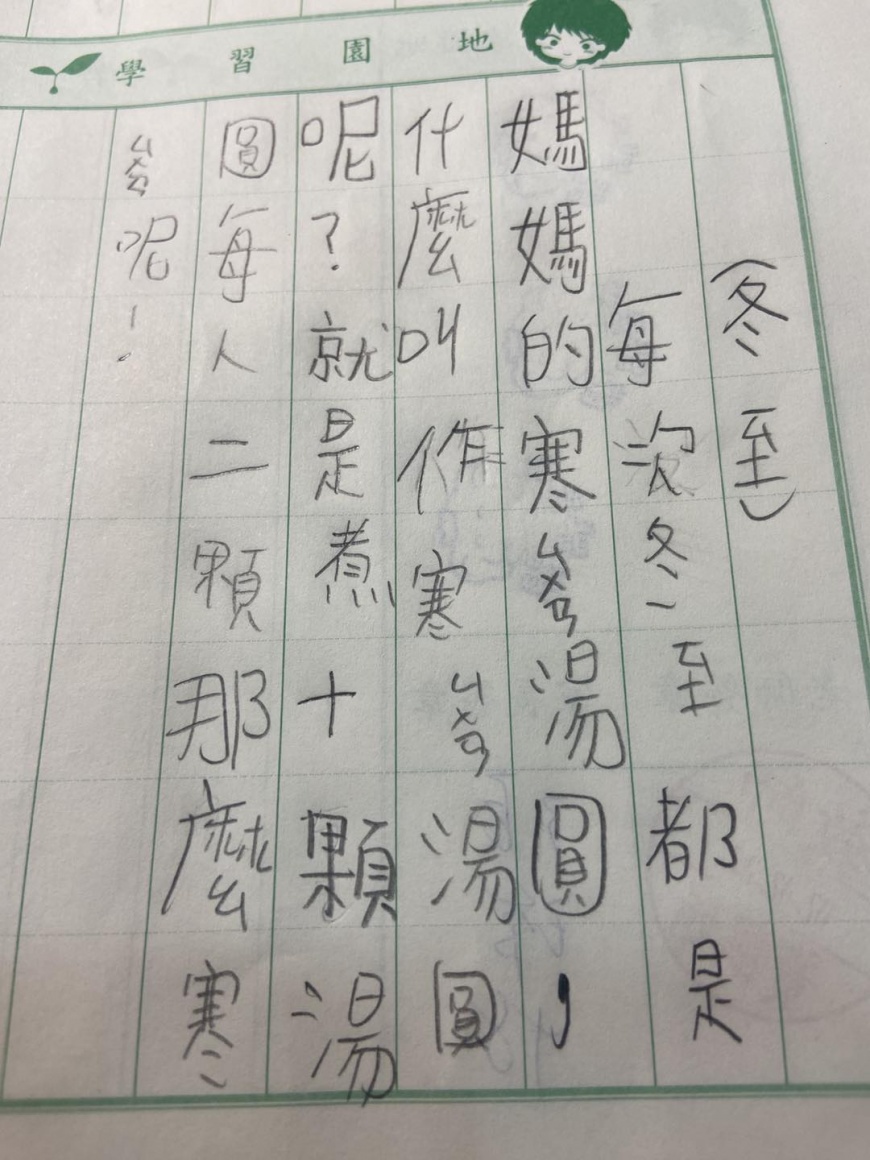 學習園地
(冬至)
每次冬至都是
媽媽的寒ㄙㄨㄢ湯圓,
什麼叫作寒ㄙㄨㄢ湯圓
呢?就是煮十顆湯
圓每人二顆那麼寒
ㄙㄨㄢ呢!